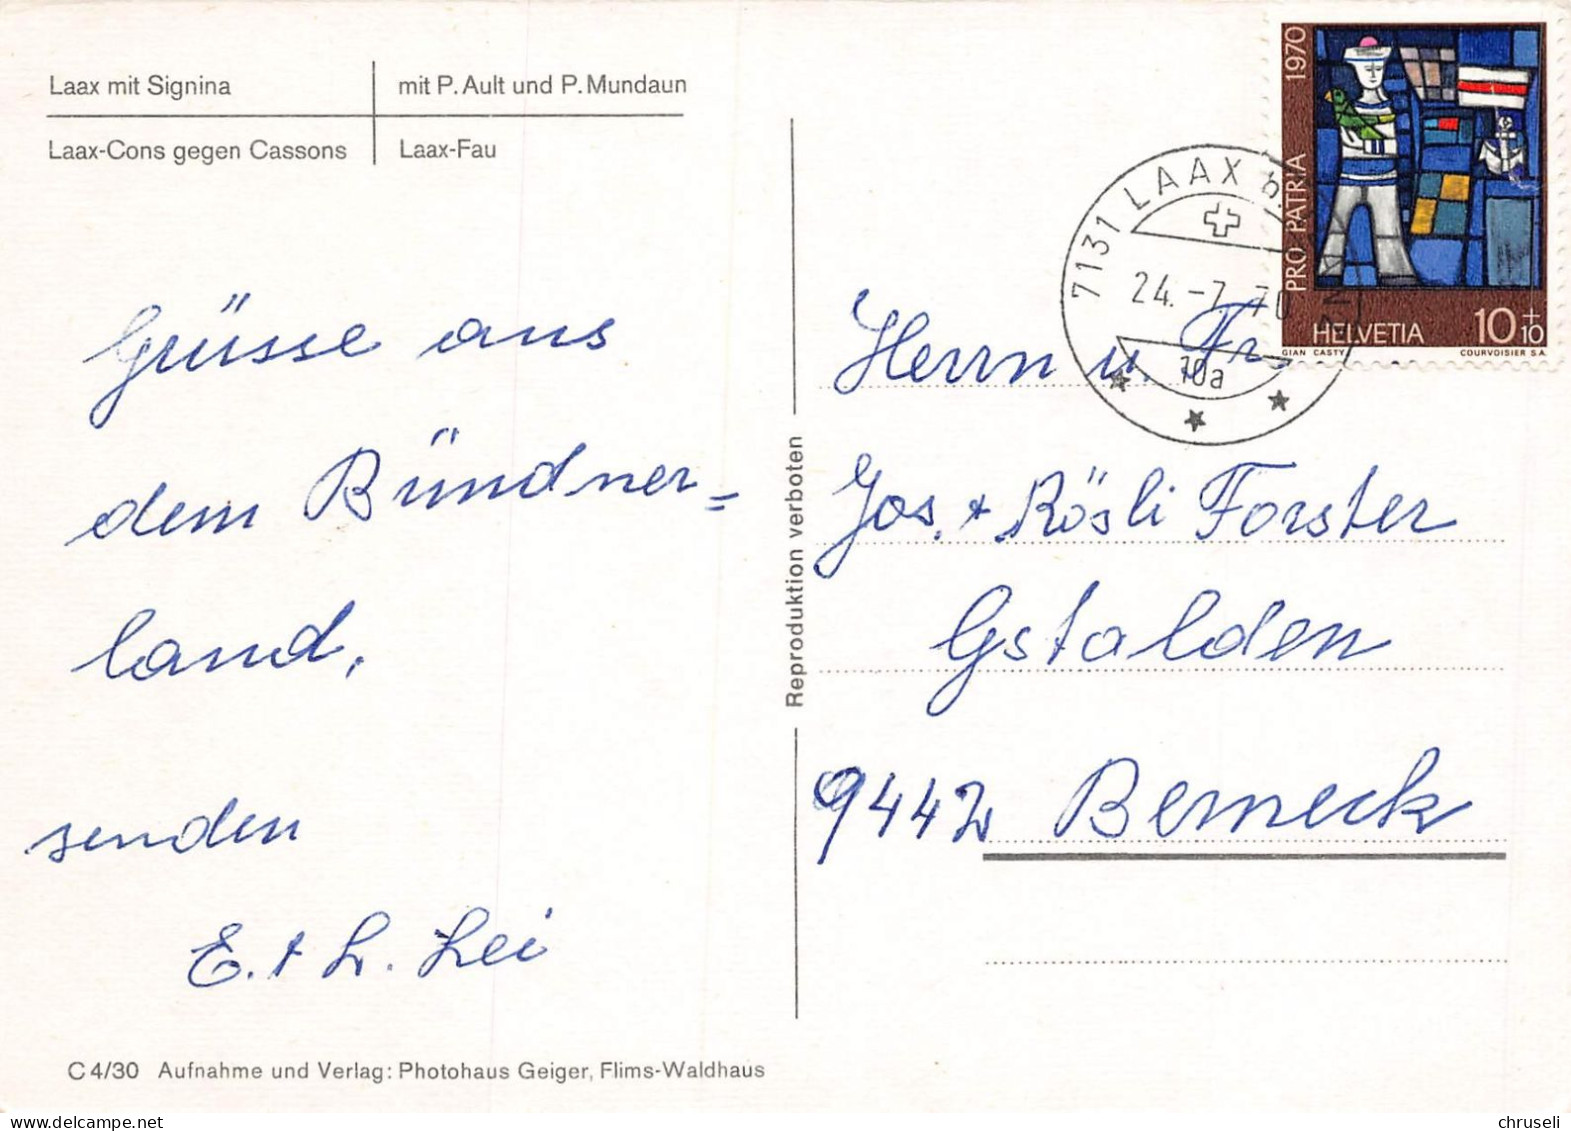 Laax mit Signina
mit P. Ault und P. Mundaun
Laax-Cons gegen Cassons
Laax-Fau
Grüsse aus
dem Bündner=
land,
senden
E. + L. Lei
C 4/30 Aufnahme und Verlag: Photohaus Geiger, Flims-Waldhaus
Reproduktion verboten
7131 LAAX b.
24.-7.70
10a
PRO PATRIA 1970
HELVETIA 10+10
GIAN CASTY COURVOISIER S.A.
Herrn u. Fr.
Jos. + Rösli Forster
Gstalden
9442 Berneck
chruseli